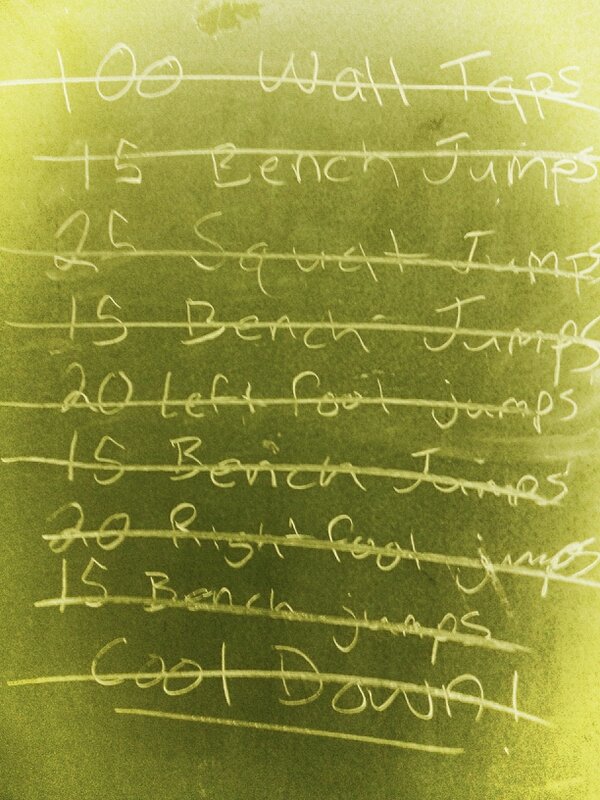 100 Wall Taps
15 Bench Jumps
25 Squat Jumps
15 Bench Jumps
20 Left foot jumps
15 Bench Jumps
20 Right foot jumps
15 Bench jumps
Cool Down!